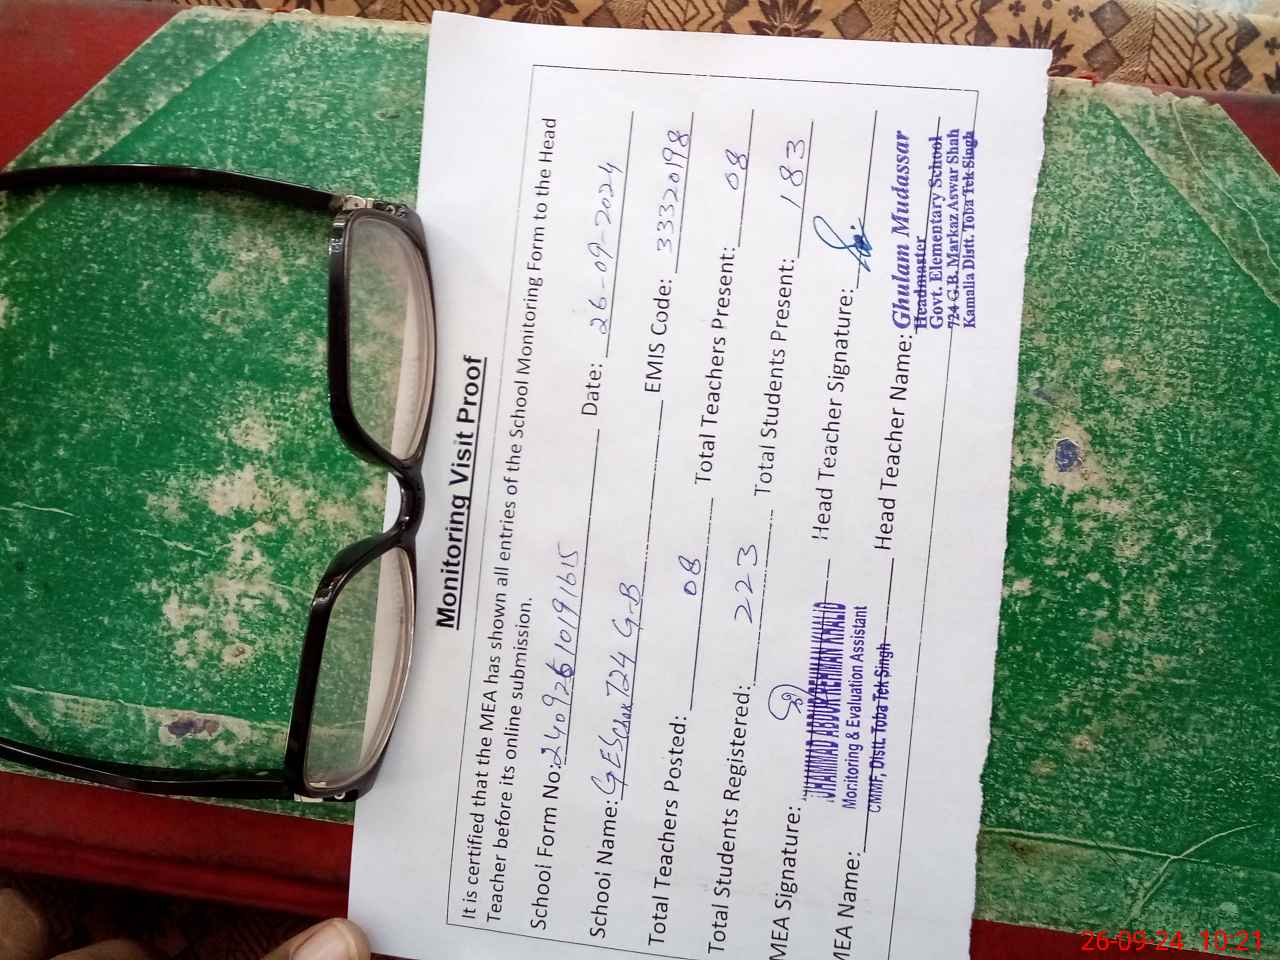 Monitoring Visit Proof
It is certified that the MEA has shown all entries of the School Monitoring Form to the Head
Teacher before its online submission.
School Form No: 24092610191615 Date: 26-09-2024
School Name: GES Chak 724 G.B EMIS Code: 33320198
Total Teachers Posted: 08 Total Teachers Present: 08
Total Students Registered: 223 Total Students Present: 183
MEA Signature: Head Teacher Signature:
MUHAMMAD ABDUR REHMAN KHALID
Monitoring & Evaluation Assistant
CMMF, Distt. Toba Tek Singh
MEA Name: Head Teacher Name:
Ghulam Mudassar
Headmaster
Govt. Elementary School
724 G.B. Markaz Aswar Shah
Kamalia Distt. Toba Tek Singh
26-09-24 10:21